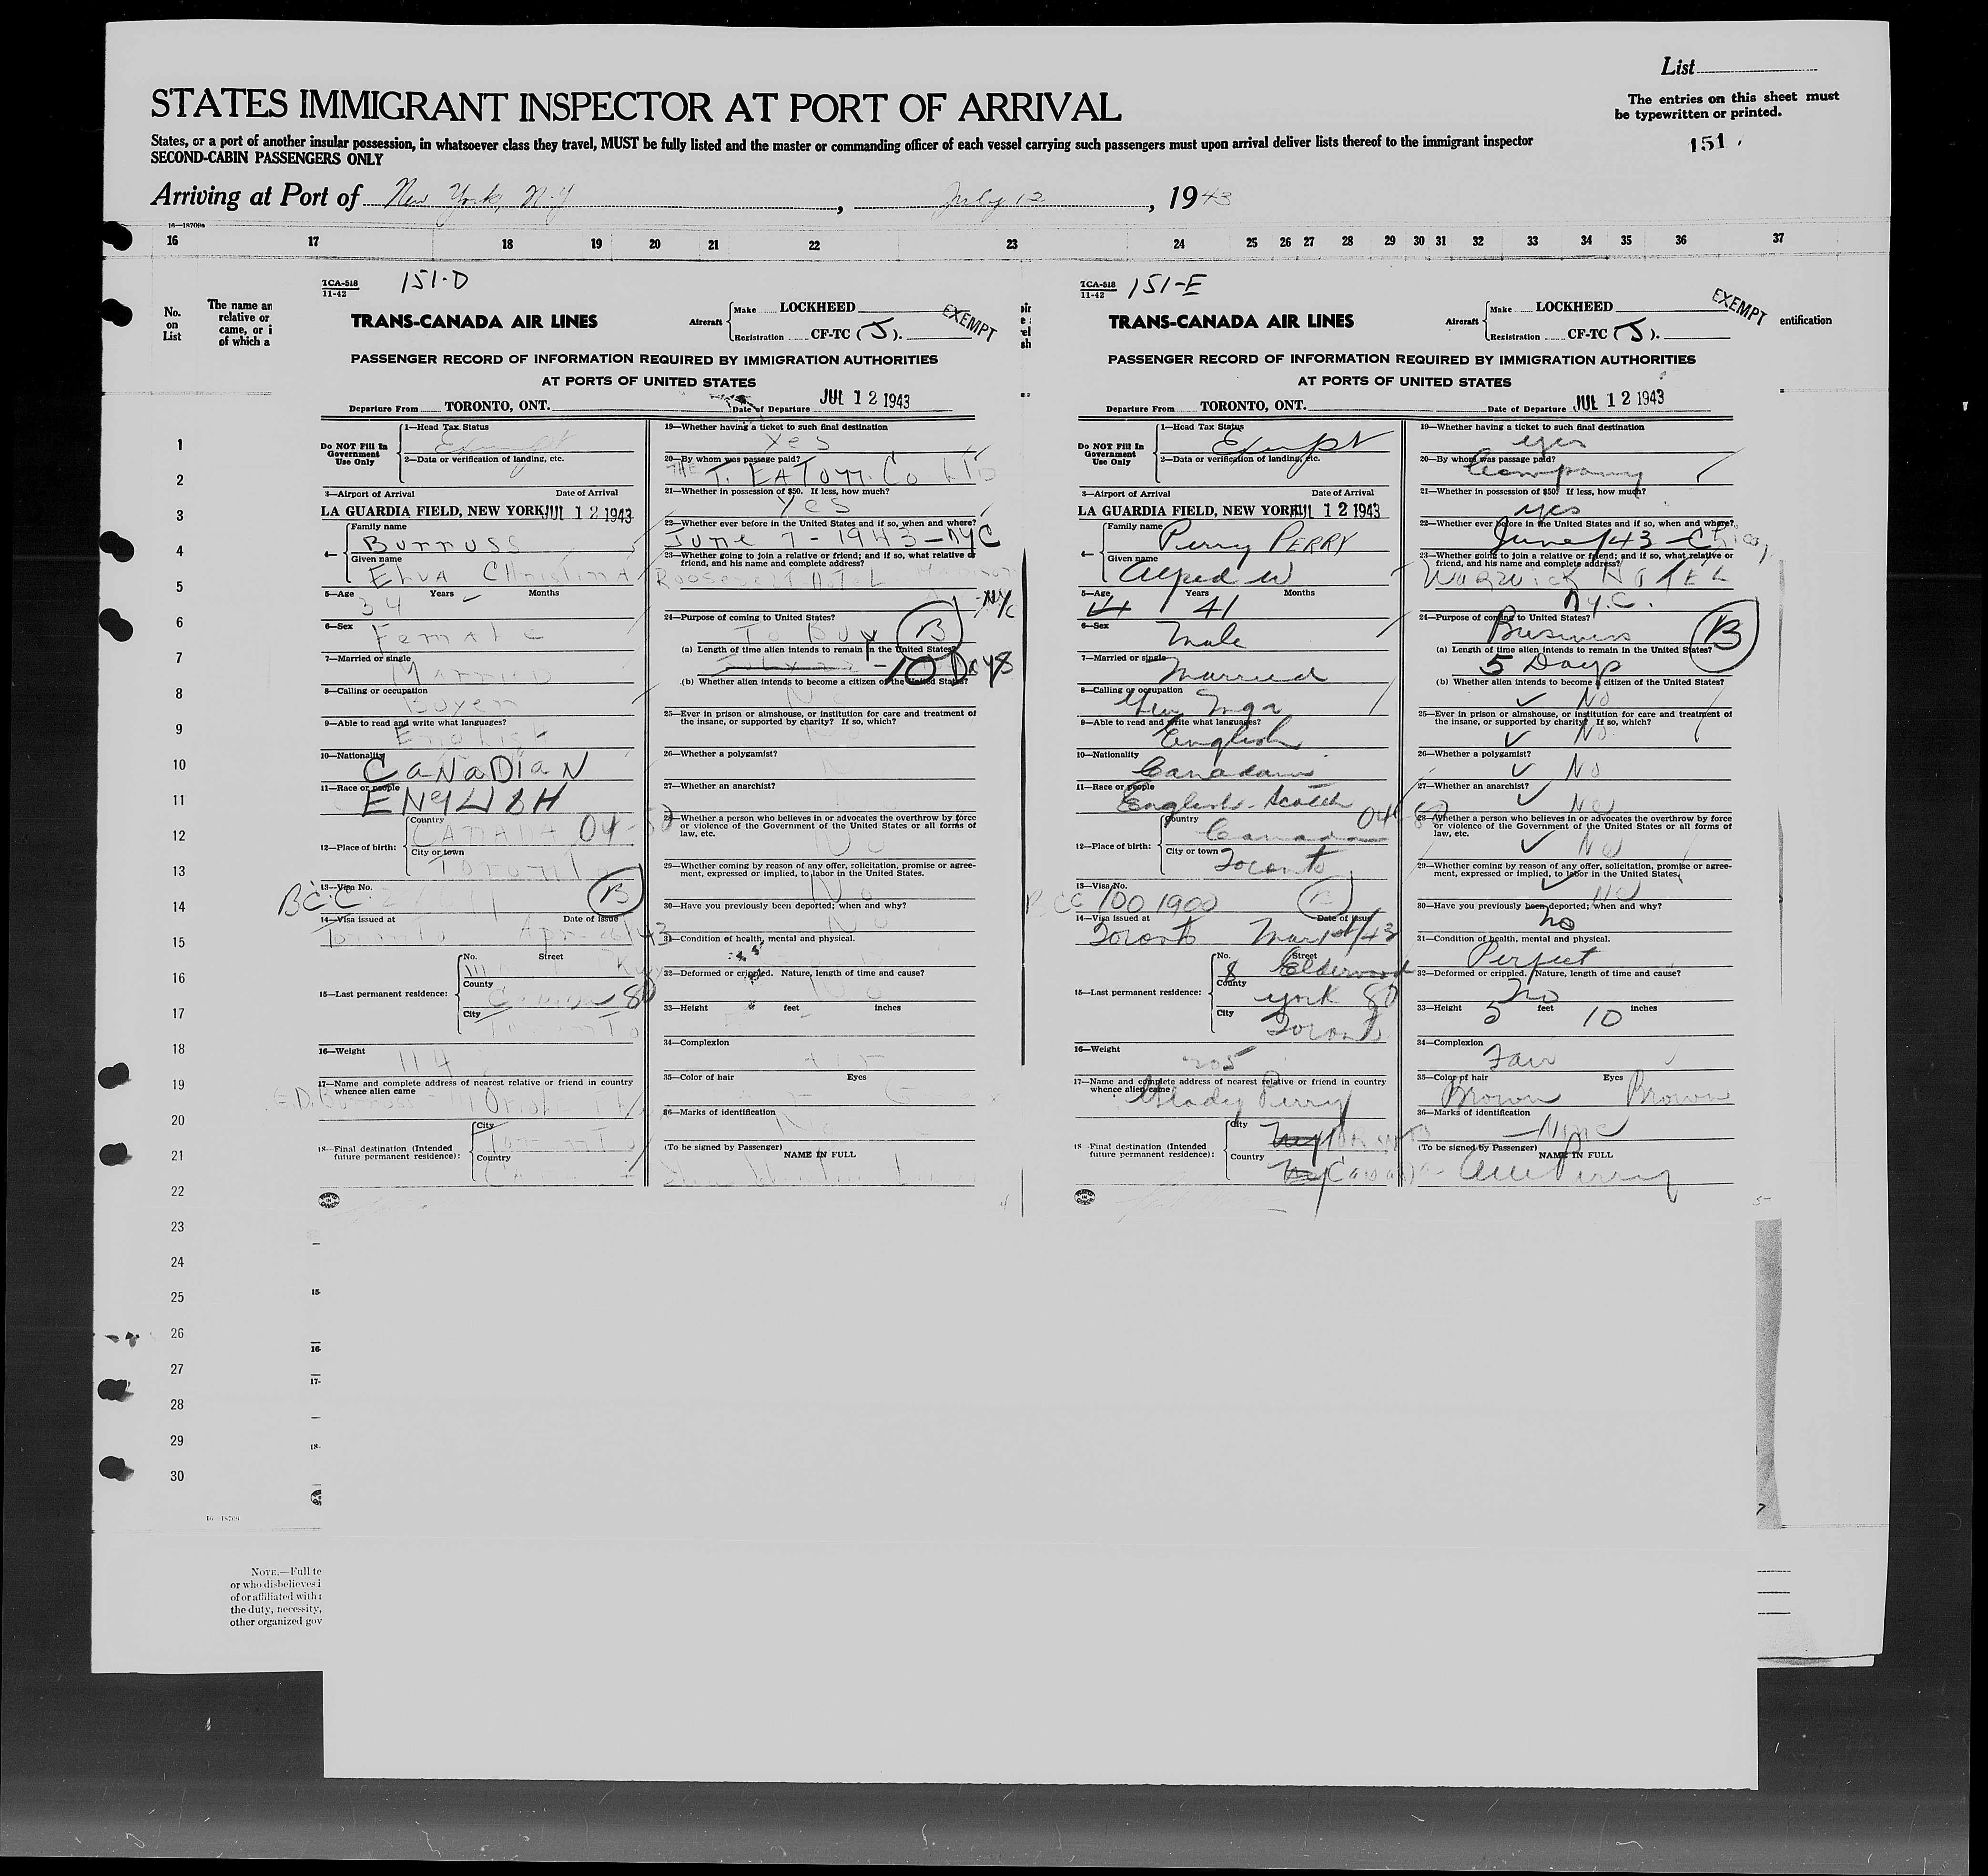 List
STATES IMMIGRANT INSPECTOR AT PORT OF ARRIVAL
The entries on this sheet must
be typewritten or printed.
States, or a port of another insular possession, in whatsoever class they travel, MUST be fully listed and the master or commanding officer of each vessel carrying such passengers must upon arrival deliver lists thereof to the immigrant inspector
SECOND-CABIN PASSENGERS ONLY
151
Arriving at Port of New York, N.Y , July 12 , 1943
16—18709a
16 17 18 19 20 21 22 23 24 25 26 27 28 29 30 31 32 33 34 35 36 37
No.
on
List
The name an
relative or
came, or i
of which a
entification
1
2
3
4
5
6
7
8
9
10
11
12
13
14
15
16
17
18
19
20
21
22
23
24
25
26
27
28
29
30
TCA-518
11-42
151-D
TRANS-CANADA AIR LINES
Aircraft
Make LOCKHEED
Registration CF-TC (J).
EXEMPT
PASSENGER RECORD OF INFORMATION REQUIRED BY IMMIGRATION AUTHORITIES
AT PORTS OF UNITED STATES
Departure From TORONTO, ONT. Date of Departure JUL 12 1943
Do NOT Fill In
Government
Use Only
1—Head Tax Status
Exempt
2—Data or verification of landing, etc.
3—Airport of Arrival Date of Arrival
LA GUARDIA FIELD, NEW YORK JUL 12 1943
4—
Family name
Burruss
Given name
Elva Christina
5—Age 34 Years Months
6—Sex Female
7—Married or single
Married
8—Calling or occupation
Buyer
9—Able to read and write what languages?
English
10—Nationality
CANADIAN
11—Race or people
ENGLISH
12—Place of birth:
Country
CANADA 04-80
City or town
Toronto
13—Visa No.
B.C.C. B
14—Visa issued at Date of issue
Toronto
15—Last permanent residence:
No. Street
County
80
City
Toronto
16—Weight
114
17—Name and complete address of nearest relative or friend in country
whence alien came
18—Final destination (Intended
future permanent residence):
City
Toronto
Country
19—Whether having a ticket to such final destination
Yes
20—By whom was passage paid?
THE T. EATON Co LTD
21—Whether in possession of $50. If less, how much?
Yes
22—Whether ever before in the United States and if so, when and where?
June 7-1943-NYC
23—Whether going to join a relative or friend; and if so, what relative or
friend, and his name and complete address?
Roosevelt Hotel
NYC
24—Purpose of coming to United States?
To Buy B
(a) Length of time alien intends to remain in the United States?
10 Days
(b) Whether alien intends to become a citizen of the United States?
No
25—Ever in prison or almshouse, or institution for care and treatment of
the insane, or supported by charity? If so, which?
No
26—Whether a polygamist?
No
27—Whether an anarchist?
No
28—Whether a person who believes in or advocates the overthrow by force
or violence of the Government of the United States or all forms of
law, etc.
No
29—Whether coming by reason of any offer, solicitation, promise or agree-
ment, expressed or implied, to labor in the United States.
No
30—Have you previously been deported; when and why?
No
31—Condition of health, mental and physical.
32—Deformed or crippled. Nature, length of time and cause?
No
33—Height feet inches
34—Complexion
35—Color of hair Eyes
36—Marks of identification
No
(To be signed by Passenger)
NAME IN FULL
TCA-518
11-42
151-E
TRANS-CANADA AIR LINES
Aircraft
Make LOCKHEED
Registration CF-TC (J).
EXEMPT
PASSENGER RECORD OF INFORMATION REQUIRED BY IMMIGRATION AUTHORITIES
AT PORTS OF UNITED STATES
Departure From TORONTO, ONT. Date of Departure JUL 12 1943
Do NOT Fill In
Government
Use Only
1—Head Tax Status
Exempt
2—Data or verification of landing, etc.
3—Airport of Arrival Date of Arrival
LA GUARDIA FIELD, NEW YORK JUL 12 1943
4—
Family name
Perry PERRY
Given name
Alfred W
5—Age 41 Years Months
6—Sex
Male
7—Married or single
Married
8—Calling or occupation
Gen Mgr
9—Able to read and write what languages?
English
10—Nationality
Canadian
11—Race or people
English-Scotch
12—Place of birth:
Country
Canada 04-80
City or town
Toronto
13—Visa No.
BCC 100 1900
14—Visa issued at Date of issue
Toronto Mar 1st/43
15—Last permanent residence:
No. Street
8 Elderwood
County
York 80
City
Toronto
16—Weight
205
17—Name and complete address of nearest relative or friend in country
whence alien came
Gladys Perry
18—Final destination (Intended
future permanent residence):
City
NY Toronto
Country
NY Canada
19—Whether having a ticket to such final destination
yes
20—By whom was passage paid?
Company
21—Whether in possession of $50. If less, how much?
yes
22—Whether ever before in the United States and if so, when and where?
June/43 - Chicago
23—Whether going to join a relative or friend; and if so, what relative or
friend, and his name and complete address?
WARWICK HOTEL
N.Y.C.
24—Purpose of coming to United States?
Business B
(a) Length of time alien intends to remain in the United States?
5 Days
(b) Whether alien intends to become a citizen of the United States?
No
25—Ever in prison or almshouse, or institution for care and treatment of
the insane, or supported by charity? If so, which?
No
26—Whether a polygamist?
No
27—Whether an anarchist?
No
28—Whether a person who believes in or advocates the overthrow by force
or violence of the Government of the United States or all forms of
law, etc.
No
29—Whether coming by reason of any offer, solicitation, promise or agree-
ment, expressed or implied, to labor in the United States.
No
30—Have you previously been deported; when and why?
No
31—Condition of health, mental and physical.
Perfect
32—Deformed or crippled. Nature, length of time and cause?
No
33—Height 5 feet 10 inches
34—Complexion
Fair
35—Color of hair Eyes
Brown Brown
36—Marks of identification
None
(To be signed by Passenger)
NAME IN FULL
AW Perry
15-
16-
17-
18-
16—18709
NOTE.—Full te
or who disbelieves i
of or affiliated with
the duty, necessity,
other organized gov